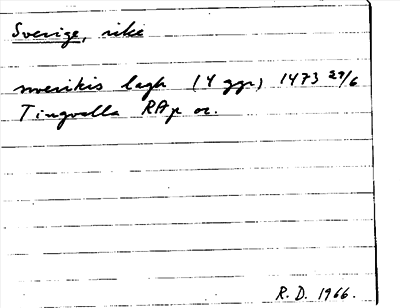 Sverige, rike
swerikis lagh (4 ggr) 1473 29/6
Tingvalla RAp or.
R. D. 1966.